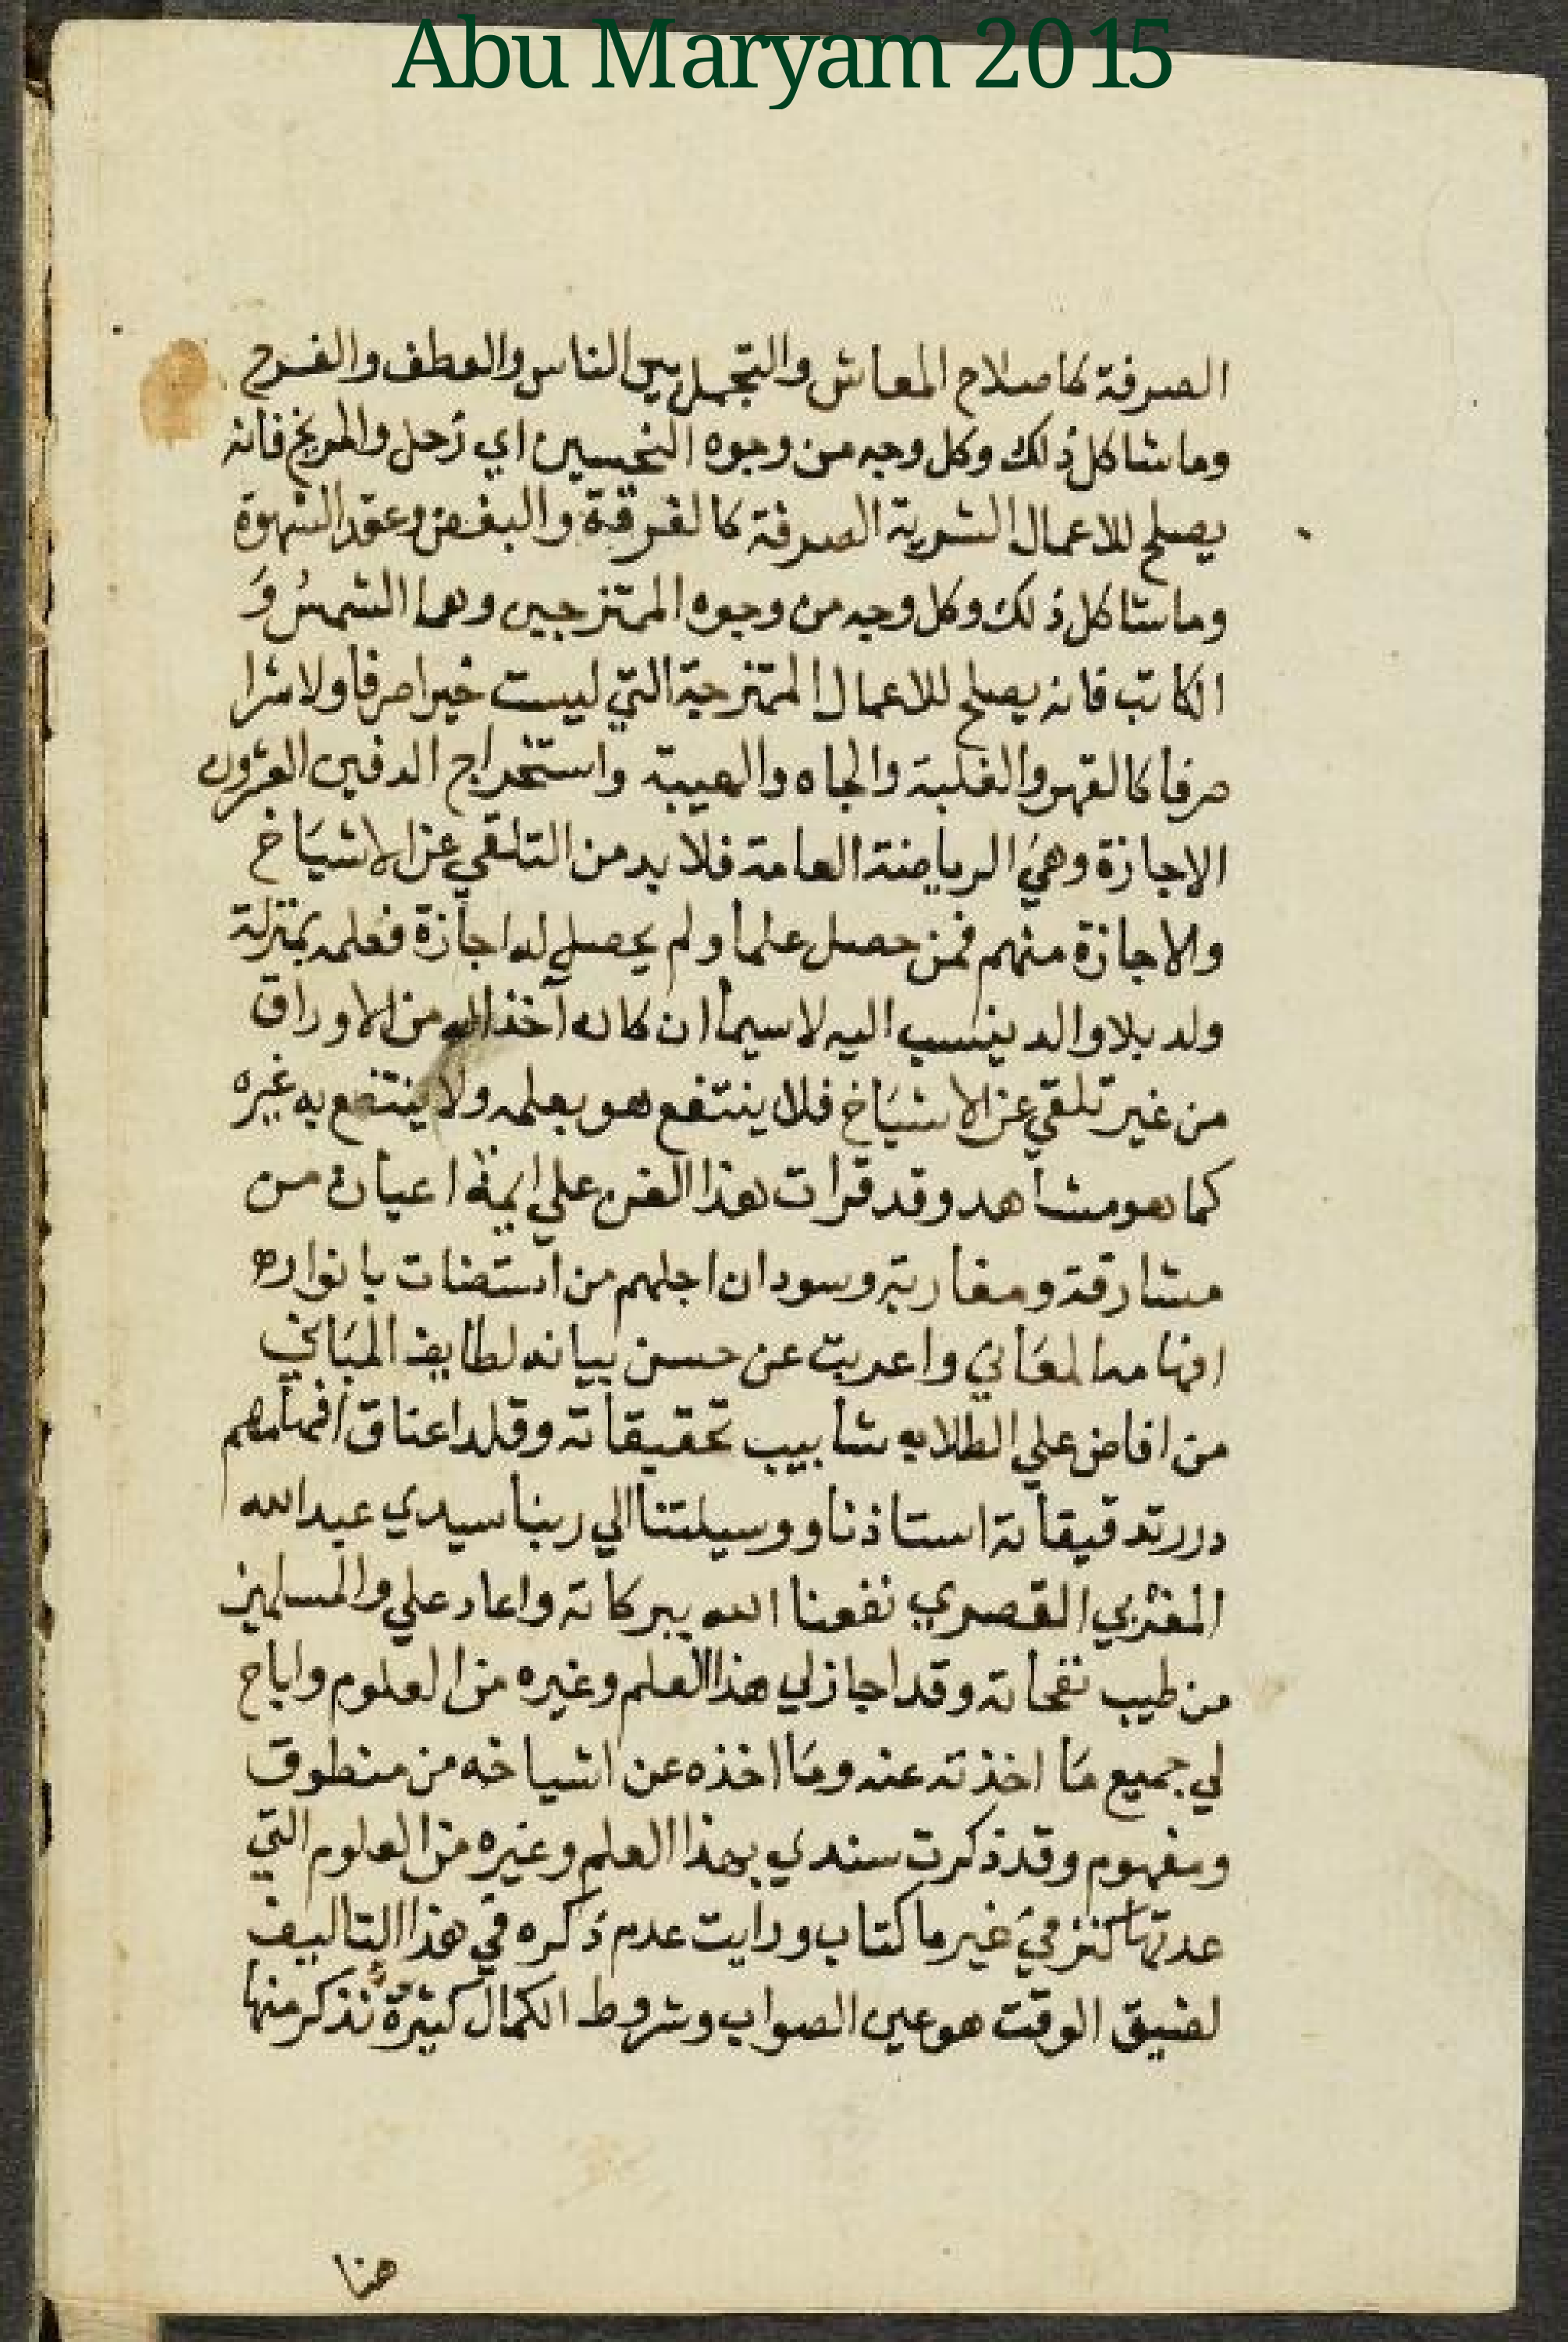 Abu Maryam 2015
الصرفة كاصلاح المعاش والتجمل بين الناس والعطف والفرح
وما شاكل ذلك وكل وجه من وجوه النحسين اي زحل والمريخ فانه
يصلح للاعمال الشرية الصرفة كالفرقة والبغض وعقد الشهوة
وما شاكل ذلك وكل وجه من وجوه الممتزجين وهما الشمس و
الكاتب فانه يصلح للاعمال الممتزجة التي ليست خيرا صرفا ولا شرا
صرفا كالقهر والغلبة والجاه والهيبة واستخراج الدفين العشرون
الاجازة وهي الرياضة العامة فلا بد من التلقي عن الاشياخ
والاجازة منهم فمن حصل علما ولم يحصل له اجازة فعلمه بمنزلة
ولد بلا والد ينسب اليه لا سيما ان كان اخذ من الاوراق
من غير تلقي عن الاشياخ فلا ينتفع هو بعلمه ولا ينتفع به غيره
كما هو مشاهد وقد قرات هذا الفن علي ايمة اعيان من
مشارقة ومغاربة وسودان اجلهم من استضات بانواره
افهامنا المعاني واعربت عن حسن بيانه لطايف المباني
من افاض علي الطلاب شابيب تحقيقاته وقلد اعناق افهامهم
درر تدقيقاته استاذنا ووسيلتنا الي ربنا سيدي عبد الله
المغربي القصري نفعنا الله ببركاته واعاد علي والمسلمين
من طيب نفحاته وقد اجازلي هذا العلم وغيره من العلوم واباح
لي جميع ما اخذته عنه وما اخذه عن اشياخه من منطوق
ومفهوم وقد ذكرت سندي بهذا العلم وغيره من العلوم التي
عدتها كنز في غير ما كتاب ورايت عدم ذكره في هذا التاليف
لضيق الوقت هو عين الصواب وشروط الكمال كثيرة نذكر منها
هنا